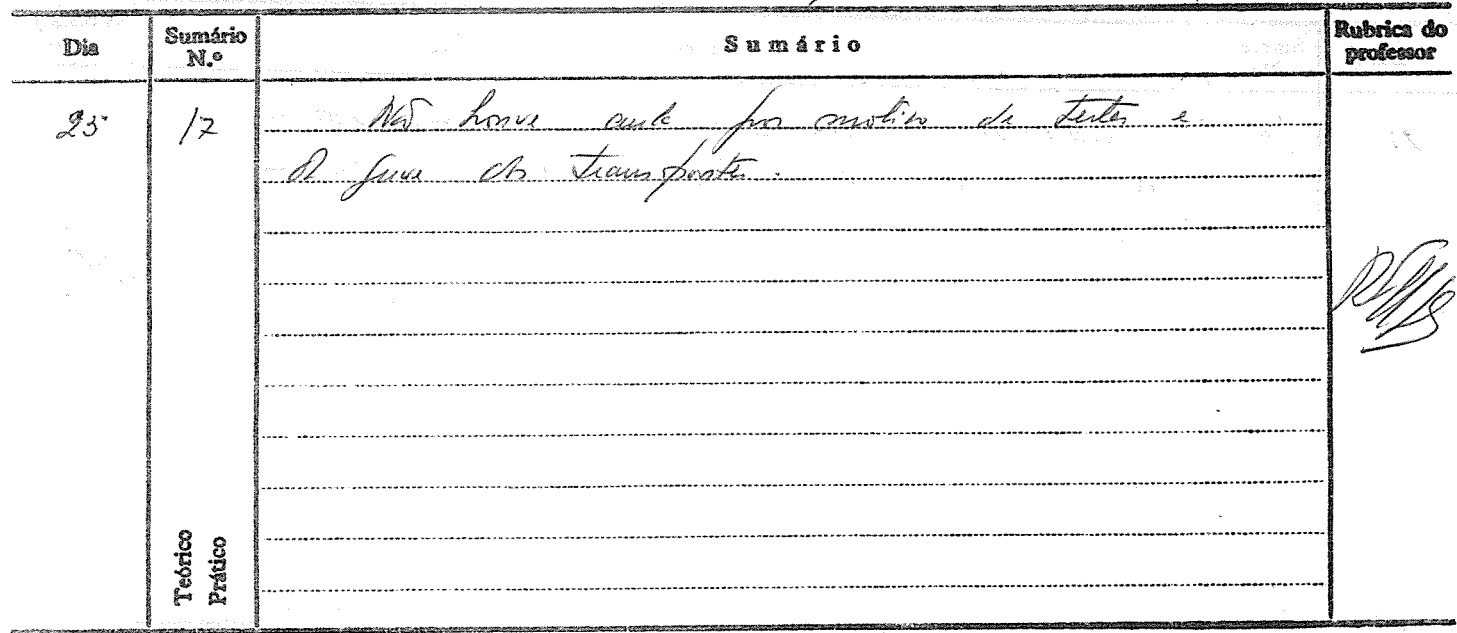 Dia
Sumário N.º
Sumário
Rubrica do professor
23
17
Não houve aula por motivo de testes e
de greve dos transportes.
Teórico
Prático